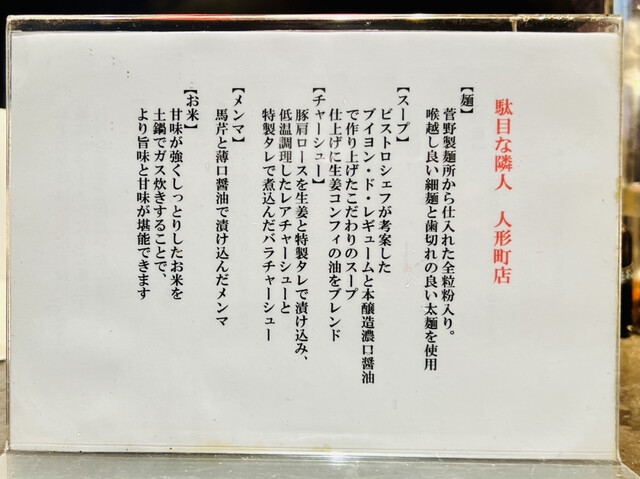 駄目な隣人 人形町店
【麺】
菅野製麺所から仕入れた全粒粉入り。
喉越し良い細麺と歯切れの良い太麺を使用
【スープ】
ビストロシェフが考案した
ブイヨン・ド・レギュームと本醸造濃口醤油
で作り上げたこだわりのスープ
仕上げに生姜コンフィの油をブレンド
【チャーシュー】
豚肩ロースを生姜と特製タレで漬け込み、
低温調理したレアチャーシューと
特製タレで煮込んだバラチャーシュー
【メンマ】
馬芹と薄口醤油で漬け込んだメンマ
【お米】
甘味が強くしっとりしたお米を
土鍋でガス炊きすることで、
より旨味と甘味が堪能できます